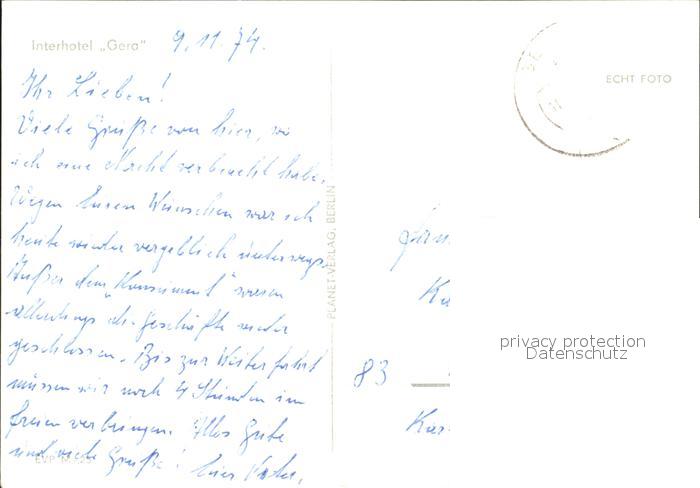 Interhotel „Gera"
9.11.74.
Ihr Lieben!
Viele Grüße von hier, wo
ich eine Nacht verbracht habe.
Wegen Euren Wünschen war ich
heute wieder vergeblich unterwegs.
Außer dem „Konsument" waren
allerdings die Geschäfte
geschlossen. Bis zur Weiterfahrt
müssen wir noch 4 Stunden im
freien verbringen. Alles Gute
und viele Grüße! Euer
EVP
PLANET-VERLAG, BERLIN
ECHT FOTO
Fam
83
privacy protection
Datenschutz